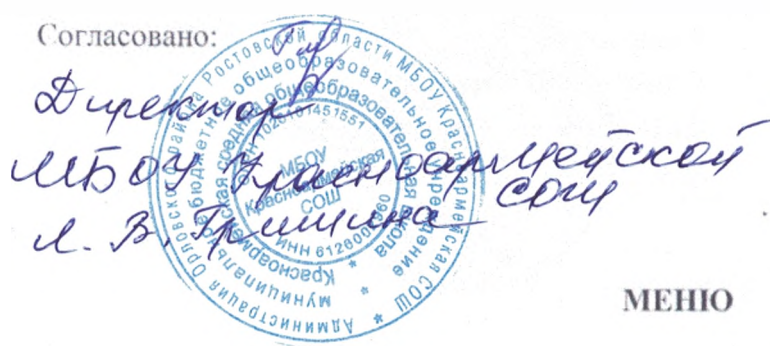 Согласовано:
Директор
МБОУ Красноармейской
СОШ
Л. В. Гришина
Администрация Орловского района Ростовской области МБОУ Красноармейская СОШ
муниципальное бюджетное общеобразовательное учреждение
Красноармейская средняя общеобразовательная школа
МБОУ
Красноармейская
СОШ
МЕНЮ